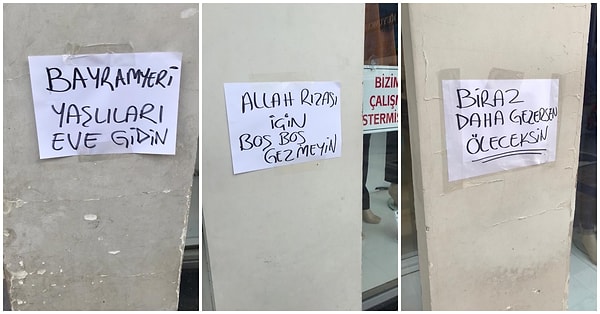 BAYRAMYERİ
YAŞLILARI
EVE GİDİN
ALLAH RIZASI
İÇİN
BOŞ BOŞ
GEZMEYİN
BİZİM
ÇALIŞ
STERMİŞ
BİRAZ
DAHA GEZERSEN
ÖLECEKSİN